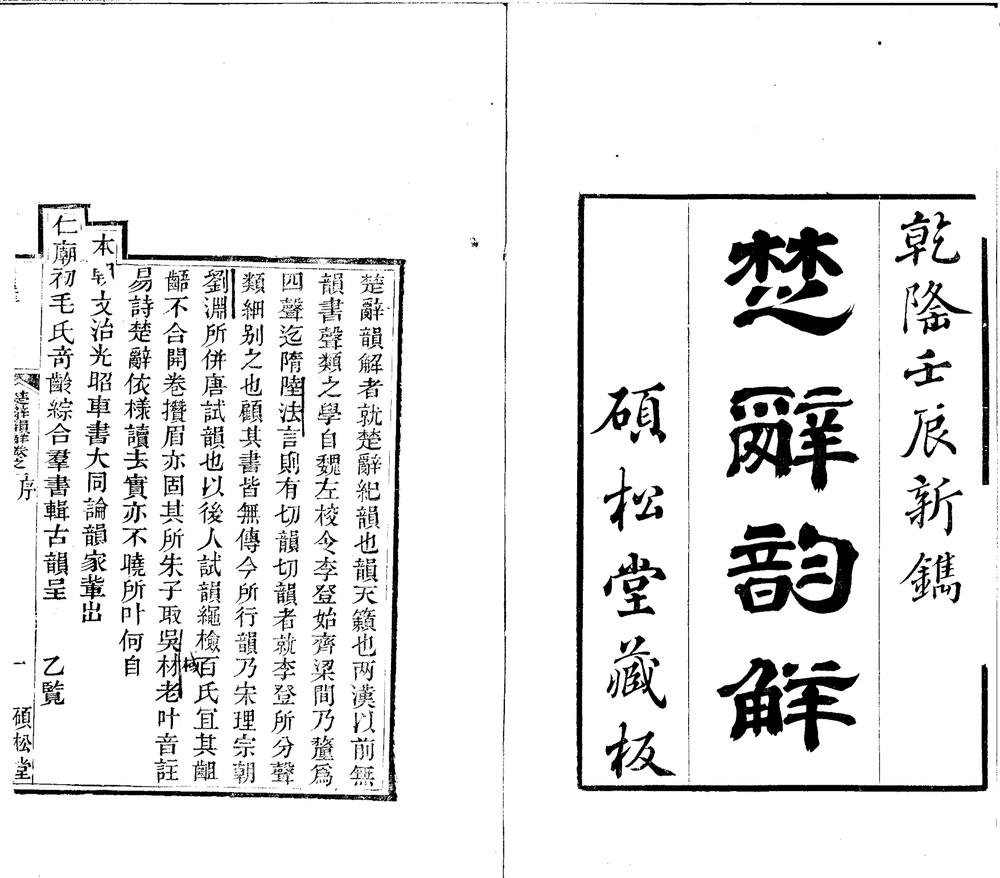 乾隆壬辰新鐫
楚辭韵解
碩松堂藏板
楚辭韻解者就楚辭紀韻也韻天籟也两漢以前無
韻書聲類之學自魏左校令李登始齊梁間乃釐爲
四聲迄隋陸法言則有切韻切韻者就李登所分聲
類細别之也顧其書皆無傳今所行韻乃宋理宗朝
劉淵所併唐試韻也以後人試韻繩檢百氏宜其齟
齬不合開卷攢眉亦固其所朱子取吳棫材老叶音註
易詩楚辭依様讀去實亦不曉所叶何自
本朝文治光昭車書大同論韻家輩出
仁廟初毛氏竒齡綜合羣書輯古韻呈 乙覧
楚辭韻解卷之序 一 碩松堂